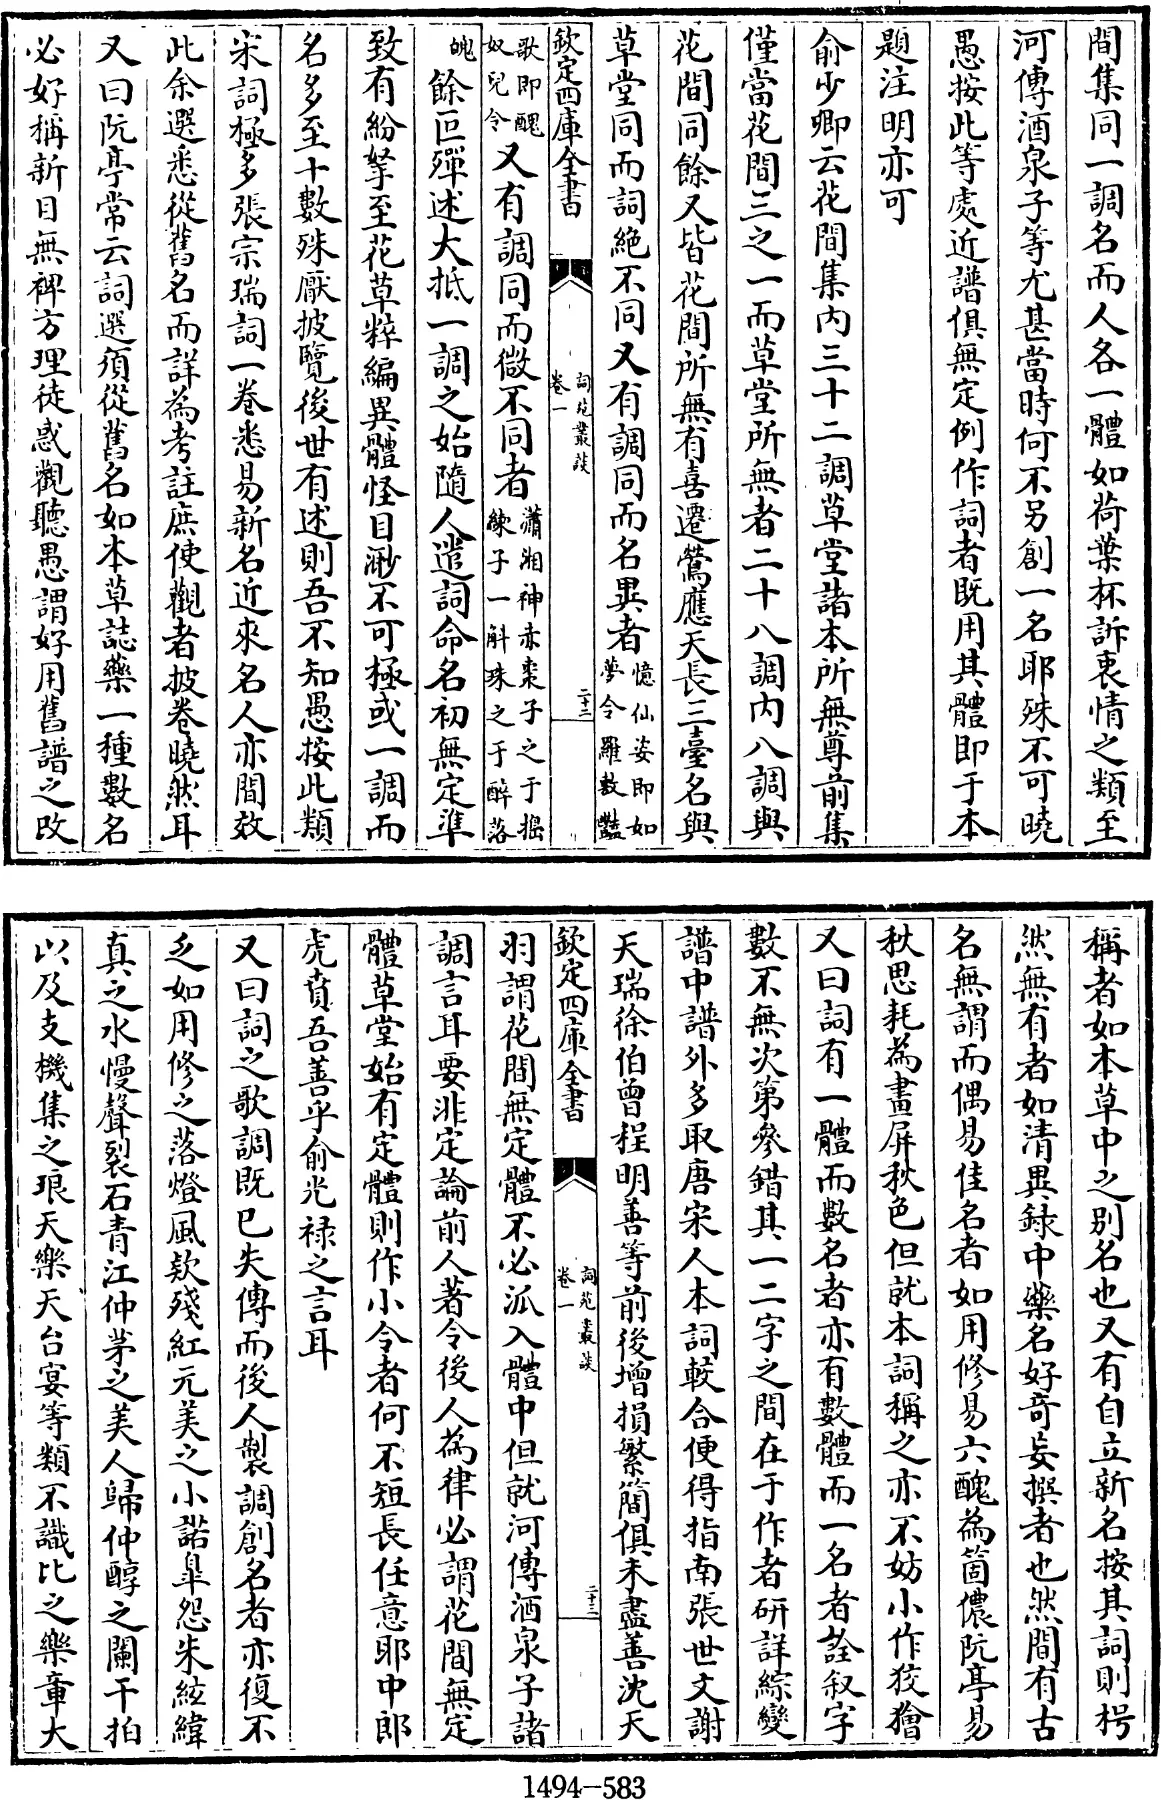 間集同一調名而人各一體如荷葉杯訴衷情之類至
河傳酒泉子等尤甚當時何不另創一名耶殊不可曉
愚按此等處近譜俱無定例作詞者既用其體即于本
題注明亦可
俞少卿云花間集內三十二調草堂諸本所無尊前集
僅當花間三之一而草堂所無者二十八調內八調與
花間同餘又皆花間所無有喜遷鶯應天長三臺名與
草堂同而詞絶不同又有調同而名異者憶仙姿即如
夢令羅敷豔
欽定四庫全書
詞苑叢談
卷一
二十二
歌即醜
奴兒令又有調同而微不同者瀟湘神赤棗子之于搗
練子一斛珠之于醉落
魄餘叵殫述大抵一調之始隨人遣詞命名初無定準
致有紛拏至花草粹編異體怪目渺不可極或一調而
名多至十數殊厭披覽後世有述則吾不知愚按此類
宋詞極多張宗瑞詞一卷悉易新名近來名人亦間效
此余選悉從舊名而詳為考註庶使觀者披卷曉然耳
又曰阮亭常云詞選須從舊名如本草誌藥一種數名
必好稱新目無裨方理徒惑觀聽愚謂好用舊譜之改
稱者如本草中之別名也又有自立新名按其詞則枵
然無有者如清異録中藥名好奇妄撰者也然間有古
名無謂而偶易佳名者如用修易六醜為箇儂阮亭易
秋思耗為畫屏秋色但就本詞稱之亦不妨小作狡獪
又曰詞有一體而數名者亦有數體而一名者詮叙字
數不無次第參錯其一二字之間在于作者研詳綜變
譜中譜外多取唐宋人本詞較合便得指南張世文謝
天瑞徐伯曾程明善等前後增損繁簡俱未盡善沈天
欽定四庫全書
詞苑叢談
卷一
二十三
羽謂花間無定體不必泒入體中但就河傳酒泉子諸
調言耳要非定論前人著令後人為律必謂花間無定
體草堂始有定體則作小令者何不短長任意耶中郎
虎賁吾善乎俞光禄之言耳
又曰詞之歌調既已失傳而後人製調創名者亦復不
乏如用修之落燈風欵殘紅元美之小諾臯怨朱絃緯
真之水慢聲裂石青江仲茅之美人歸仲醇之闌干拍
以及支機集之琅天樂天台宴等類不識比之樂章大
1494-583